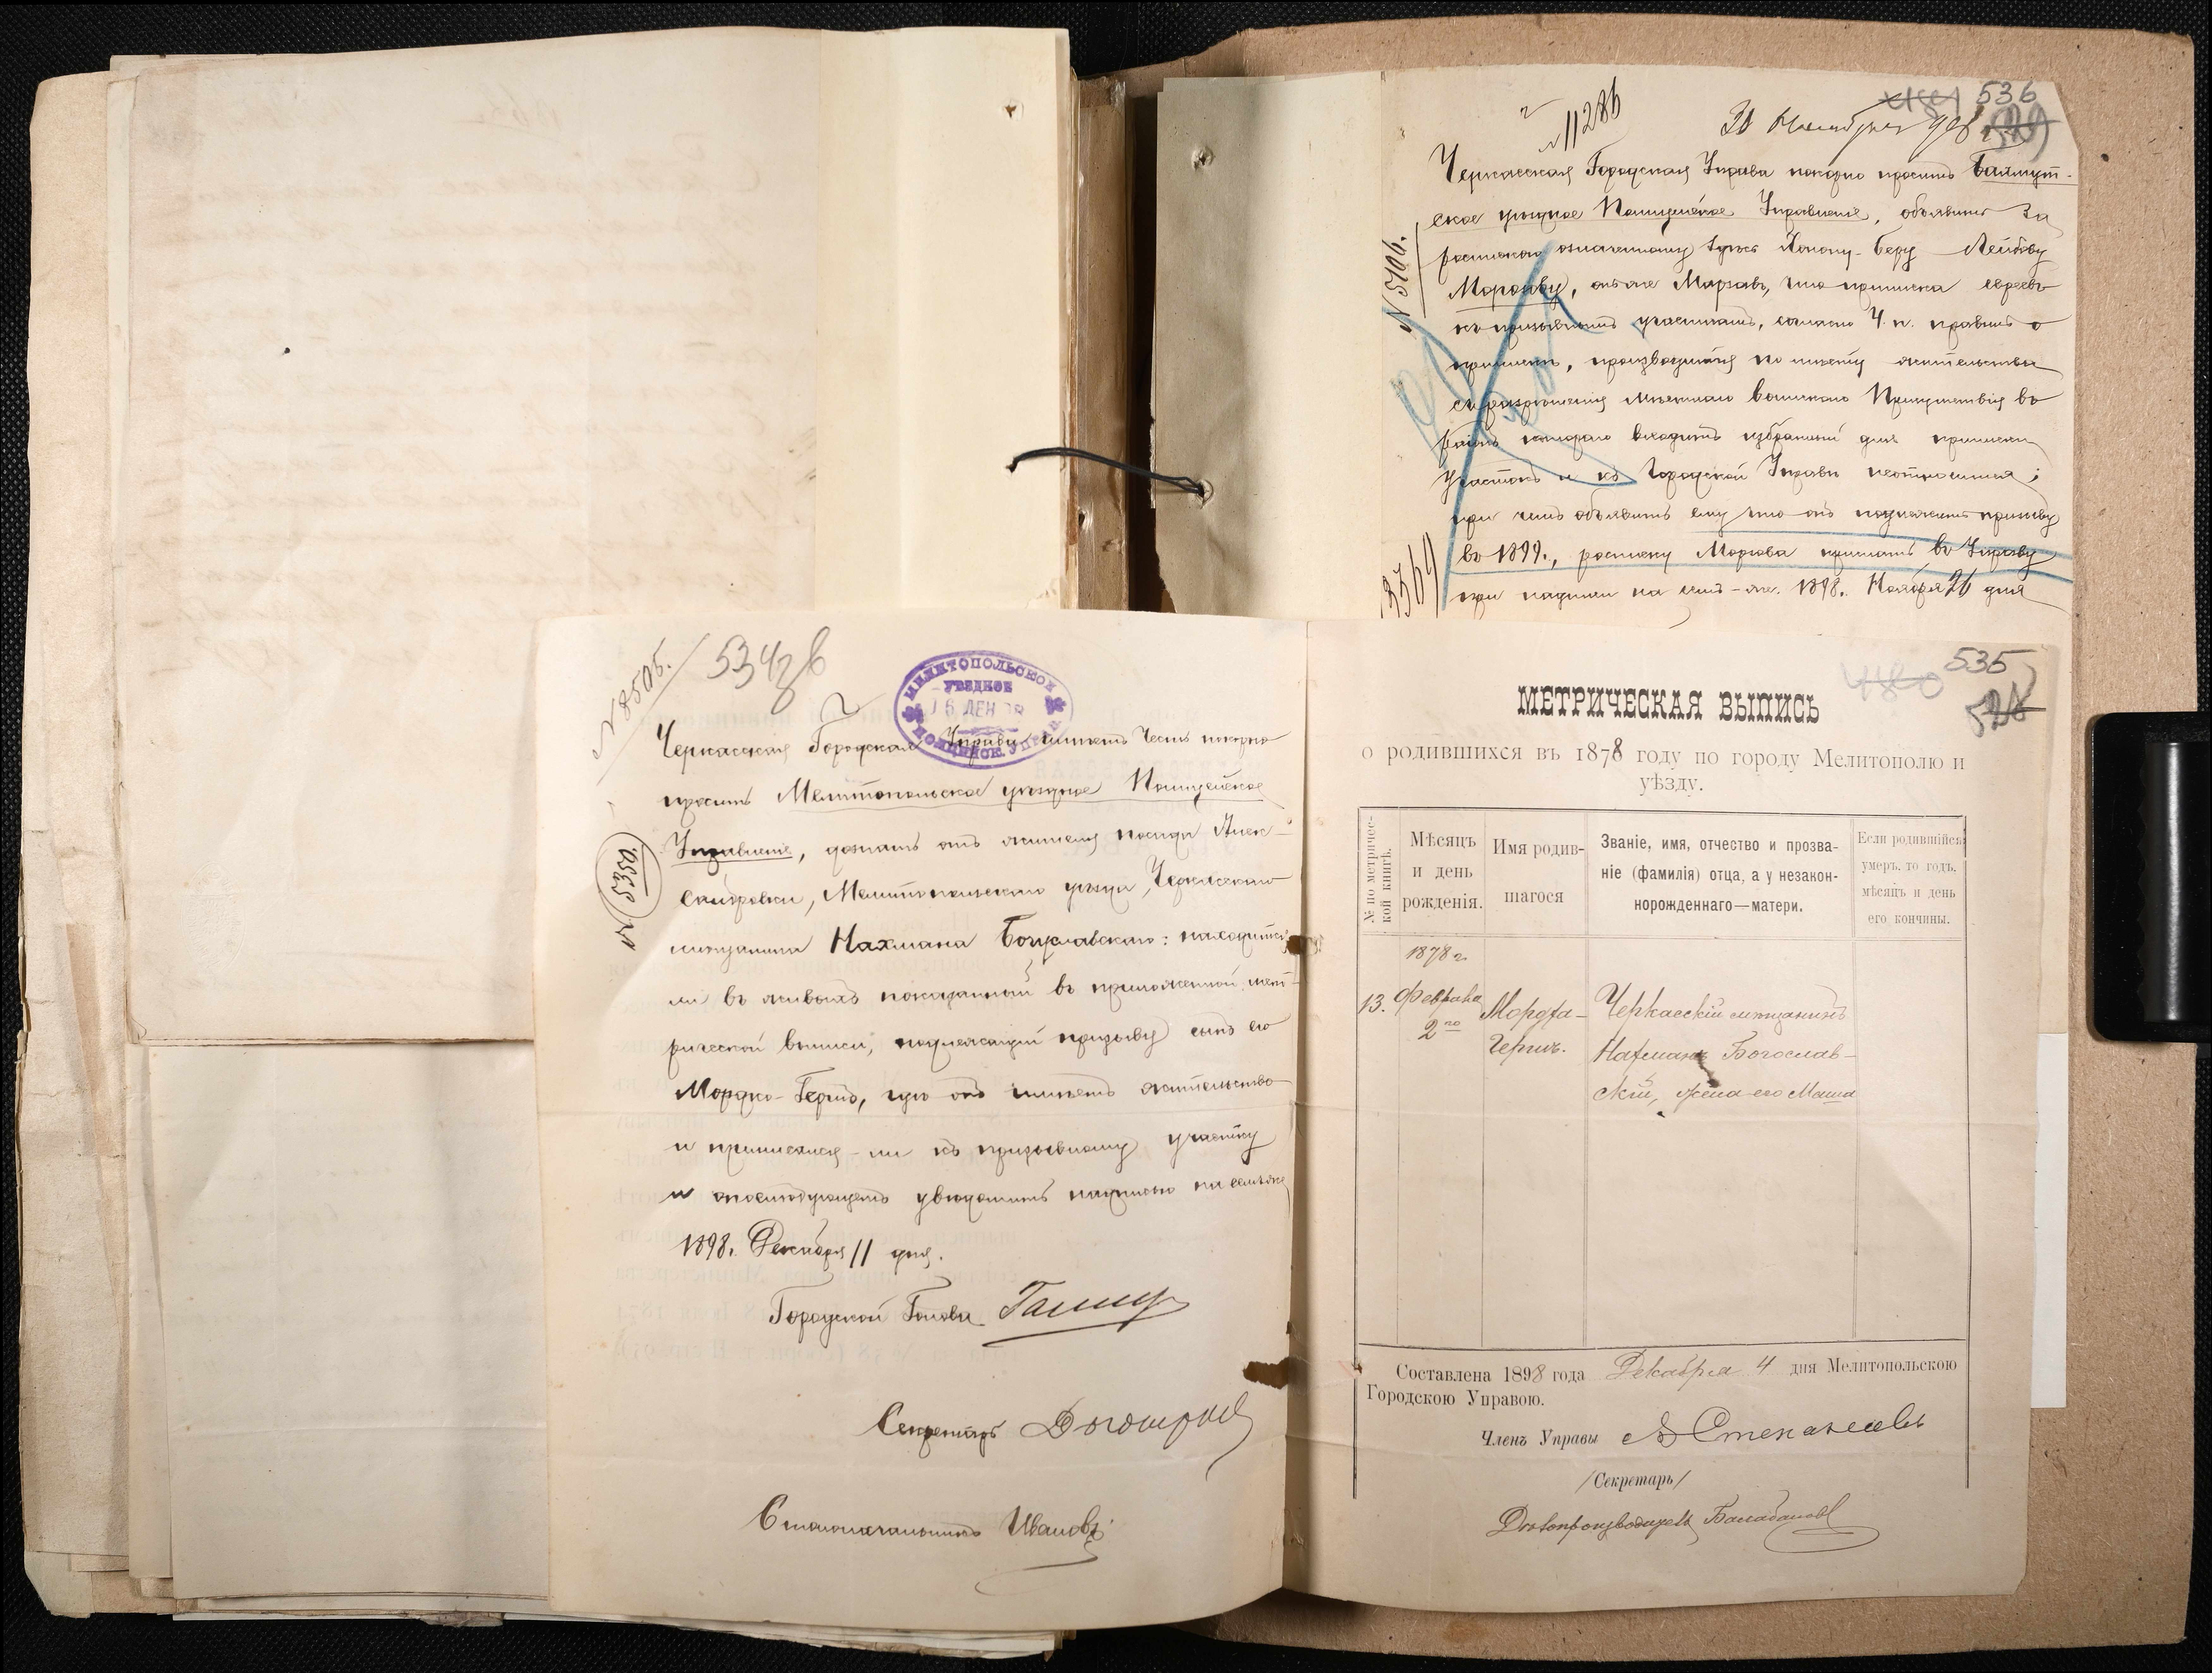 536
№ 11286
30 Ноября 98
Черкасская Городская Управа покорно проситъ Бахмут-
ское уѣздное Полицейское Управленіе, объявить за
роспискою означенному здѣсь Йоному-Беру Лейбову
Моргову, онъ же Морговъ, что приписка евреевъ
къ призывнымъ участкамъ, согласно 4 п. правилъ о
припискѣ, производится по мѣсту жительства
съ разрѣшенія мѣстнаго Воинскаго Присутствія въ
раіонъ котораго входитъ избранный для приписки
участокъ и къ Городской Управѣ неотносится;
при чемъ объявить ему что онъ подлежитъ призыву
въ 1899., росписку Моргова прислать въ Управу
при надписи на семъ-же. 1898. Ноября 26 дня
№ 5106.
№ 8505.
534
МЕЛИТОПОЛЬСКОЕ
УѢЗДНОЕ
ПОЛИЦЕЙСК. УПРАВ.
Черкасская Городская Управа имѣетъ честь покорно
проситъ Мелитопольское уѣздное Полицейское
Управленіе, дознать отъ жителя посада Алек-
сѣ́йовки, Мелитопольскаго уѣзда, Черкасскаго
мѣщанина Нахмана Богуславскаго: находится
ли въ живыхъ показанный въ приложенной мет-
рической выписи, подлежащій призыву сынъ его
Мордко-Гершъ, гдѣ онъ имѣетъ жительство
и приписался-ли къ призывному участку
и опослѣдующемъ увѣдомить надписью на семъ же
1898. Декабря 11 дня.
Городской Голова
Секретарь
Столоначальникъ Ивановъ
535
528
МЕТРИЧЕСКАЯ ВЫПИСЬ
о родившихся въ 1878 году по городу Мелитополю и
уѣзду.
№ по метричес-
кой книгѣ.
Мѣсяцъ
и день
рожденія.
Имя родив-
шагося
Званіе, имя, отчество и прозва-
ніе (фамилія) отца, а у незакон-
норожденнаго—матери.
Если родившійся
умеръ, то годъ,
мѣсяцъ и день
его кончины.
1878 г.
13. Февраля
2го
Мордха-
Гершъ.
Черкасскій мѣщанинъ
Нахманъ Богослав-
скій, жена его Маша
Составлена 1898 года Декабря 4 дня Мелитопольскою
Городскою Управою.
Членъ Управы
/Секретарь/
Дѣлопроизводитель Балабановъ